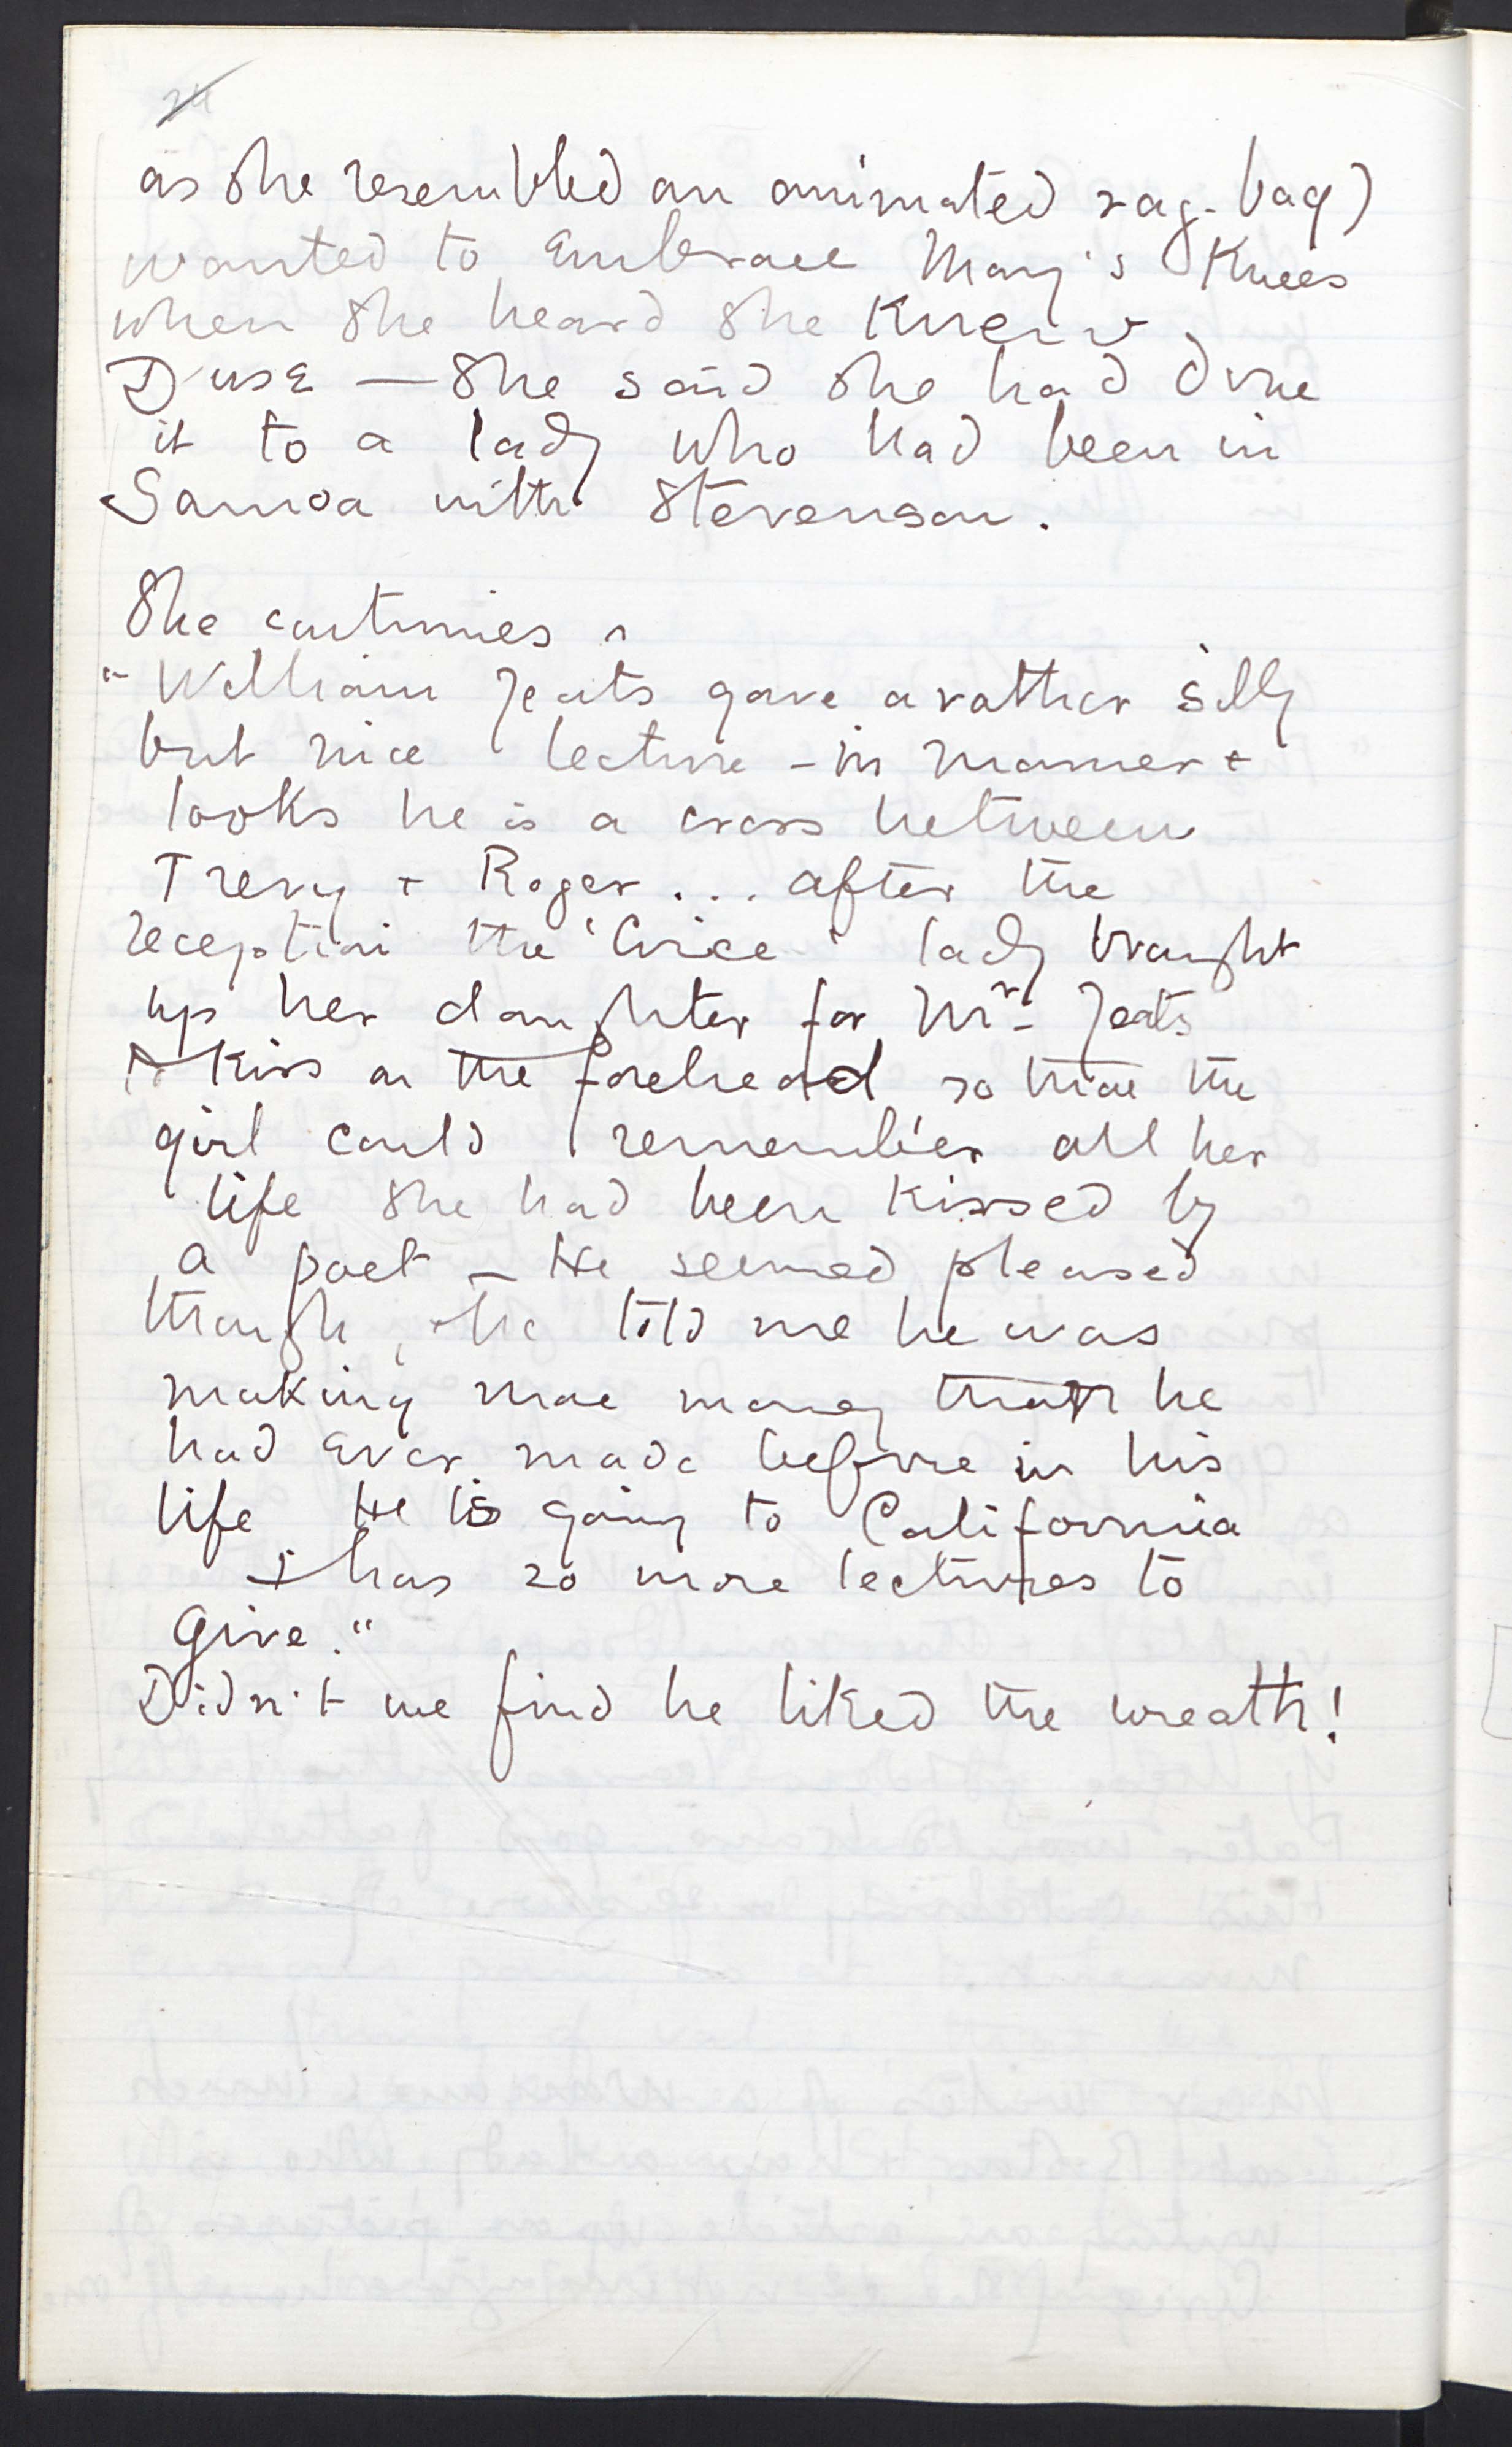 24
as she resembled an animated rag-bag)
wanted to embrace Mary's Knees
when she heard she Knew
Duse — She said she had done
it to a lady who had been in
Samoa with Stevenson.
She continues
"William Yeats gave a rather silly
but nice lecture - in manner +
looks he is a cross between
Trevy + Roger ... after the
reception the ' ' lady brought
up her daughter for Mr Yeats
to kiss on the forehead so that the
girl could remember all her
life she had been Kissed by
a poet — He seemed pleased
though, + he told me he was
making more money than he
had ever made before in his
life He is going to California
+ has 20 more lectures to
give."
Didn't we find he liked the wreath!